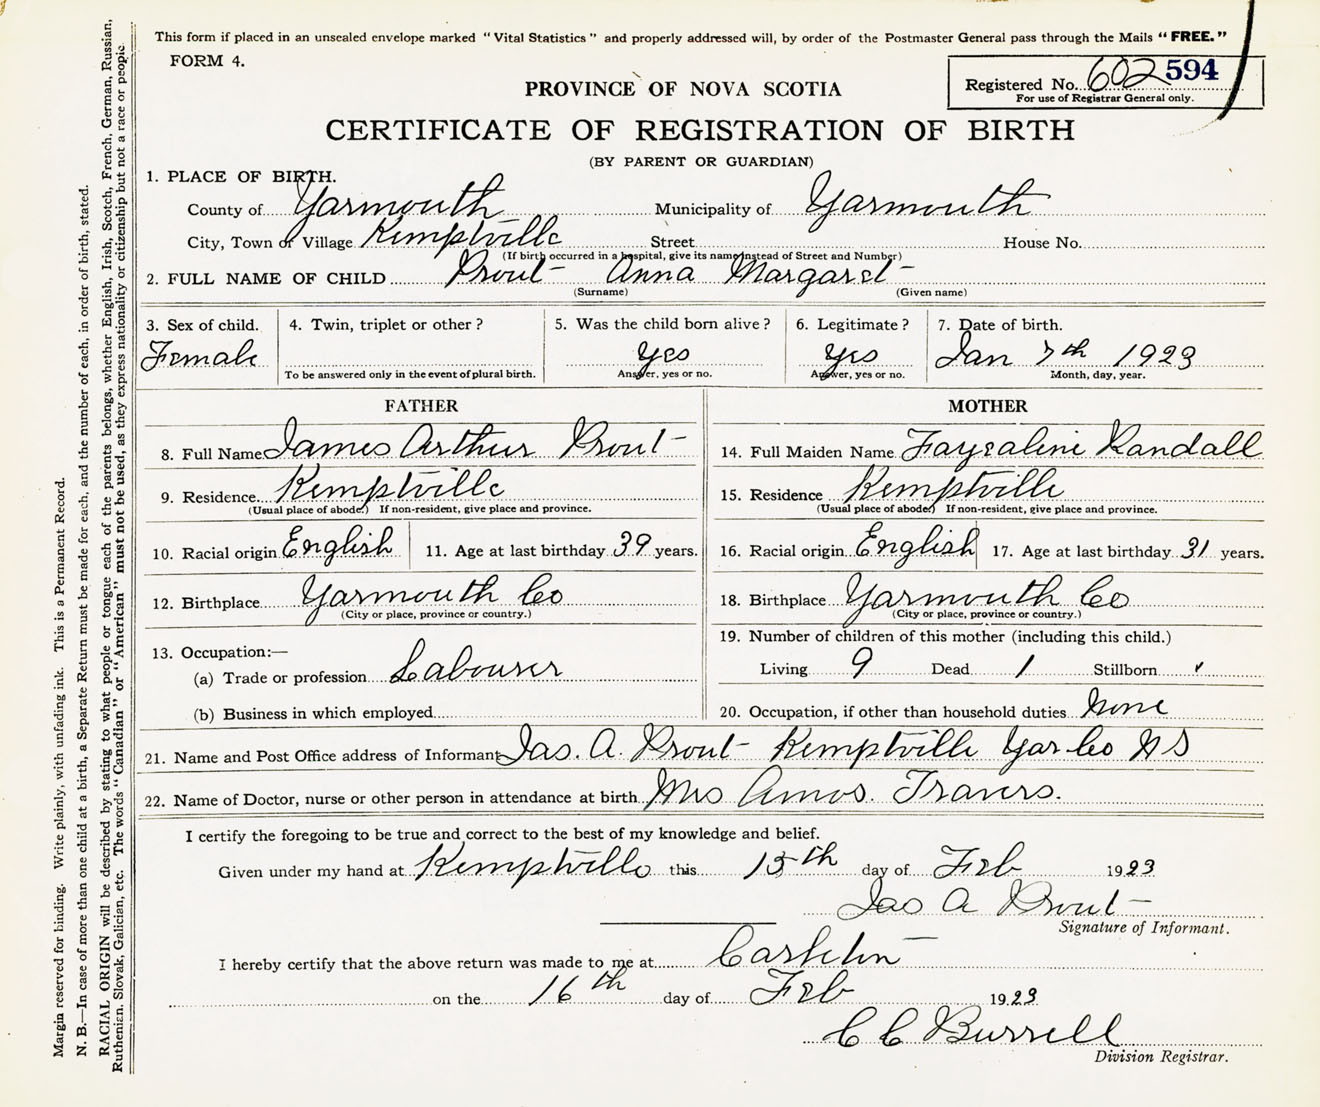 This form if placed in an unsealed envelope marked "Vital Statistics" and properly addressed will, by order of the Postmaster General pass through the Mails "FREE."
FORM 4.
Registered No. 602 594
For use of Registrar General only.
PROVINCE OF NOVA SCOTIA
CERTIFICATE OF REGISTRATION OF BIRTH
(BY PARENT OR GUARDIAN)
1. PLACE OF BIRTH.
County of Yarmouth Municipality of Yarmouth
City, Town or Village Kemptville Street House No.
(If birth occurred in a hospital, give its name instead of Street and Number)
2. FULL NAME OF CHILD Prout Anna Margaret
(Surname) (Given name)
3. Sex of child. 4. Twin, triplet or other? 5. Was the child born alive? 6. Legitimate? 7. Date of birth.
Female Yes Yes Jan 7th 1923
To be answered only in the event of plural birth. Answer, yes or no. Answer, yes or no. Month, day, year.
FATHER
8. Full Name James Arthur Prout
9. Residence Kemptville
(Usual place of abode.) If non-resident, give place and province.
10. Racial origin English 11. Age at last birthday 39 years.
12. Birthplace Yarmouth Co
(City or place, province or country.)
13. Occupation:—
(a) Trade or profession Labourer
(b) Business in which employed
MOTHER
14. Full Maiden Name Randall
15. Residence Kemptville
(Usual place of abode) If non-resident, give place and province.
16. Racial origin English 17. Age at last birthday 31 years.
18. Birthplace Yarmouth Co
(City or place, province or country.)
19. Number of children of this mother (including this child.)
Living 9 Dead 1 Stillborn
20. Occupation, if other than household duties None
21. Name and Post Office address of Informant Jas. A. Prout Kemptville Yar Co NS
22. Name of Doctor, nurse or other person in attendance at birth Mrs Amos. Travers.
I certify the foregoing to be true and correct to the best of my knowledge and belief.
Given under my hand at Kemptville this 15th day of Feb 1923
Jas A Prout
Signature of Informant.
I hereby certify that the above return was made to me at Carleton
on the 16th day of Feb 1923
C C Burrell
Division Registrar.
Margin reserved for binding. Write plainly, with unfading ink. This is a Permanent Record.
N. B.—In case of more than one child at a birth, a Separate Return must be made for each, and the number of each, in order of birth, stated.
RACIAL ORIGIN will be described by stating to what people or tongue each of the parents belongs, whether English, Irish, Scotch, French, German, Russian,
Ruthenian, Slovak, Galician, etc. The words "Canadian" or "American" must not be used, as they express nationality or citizenship but not a race or people.